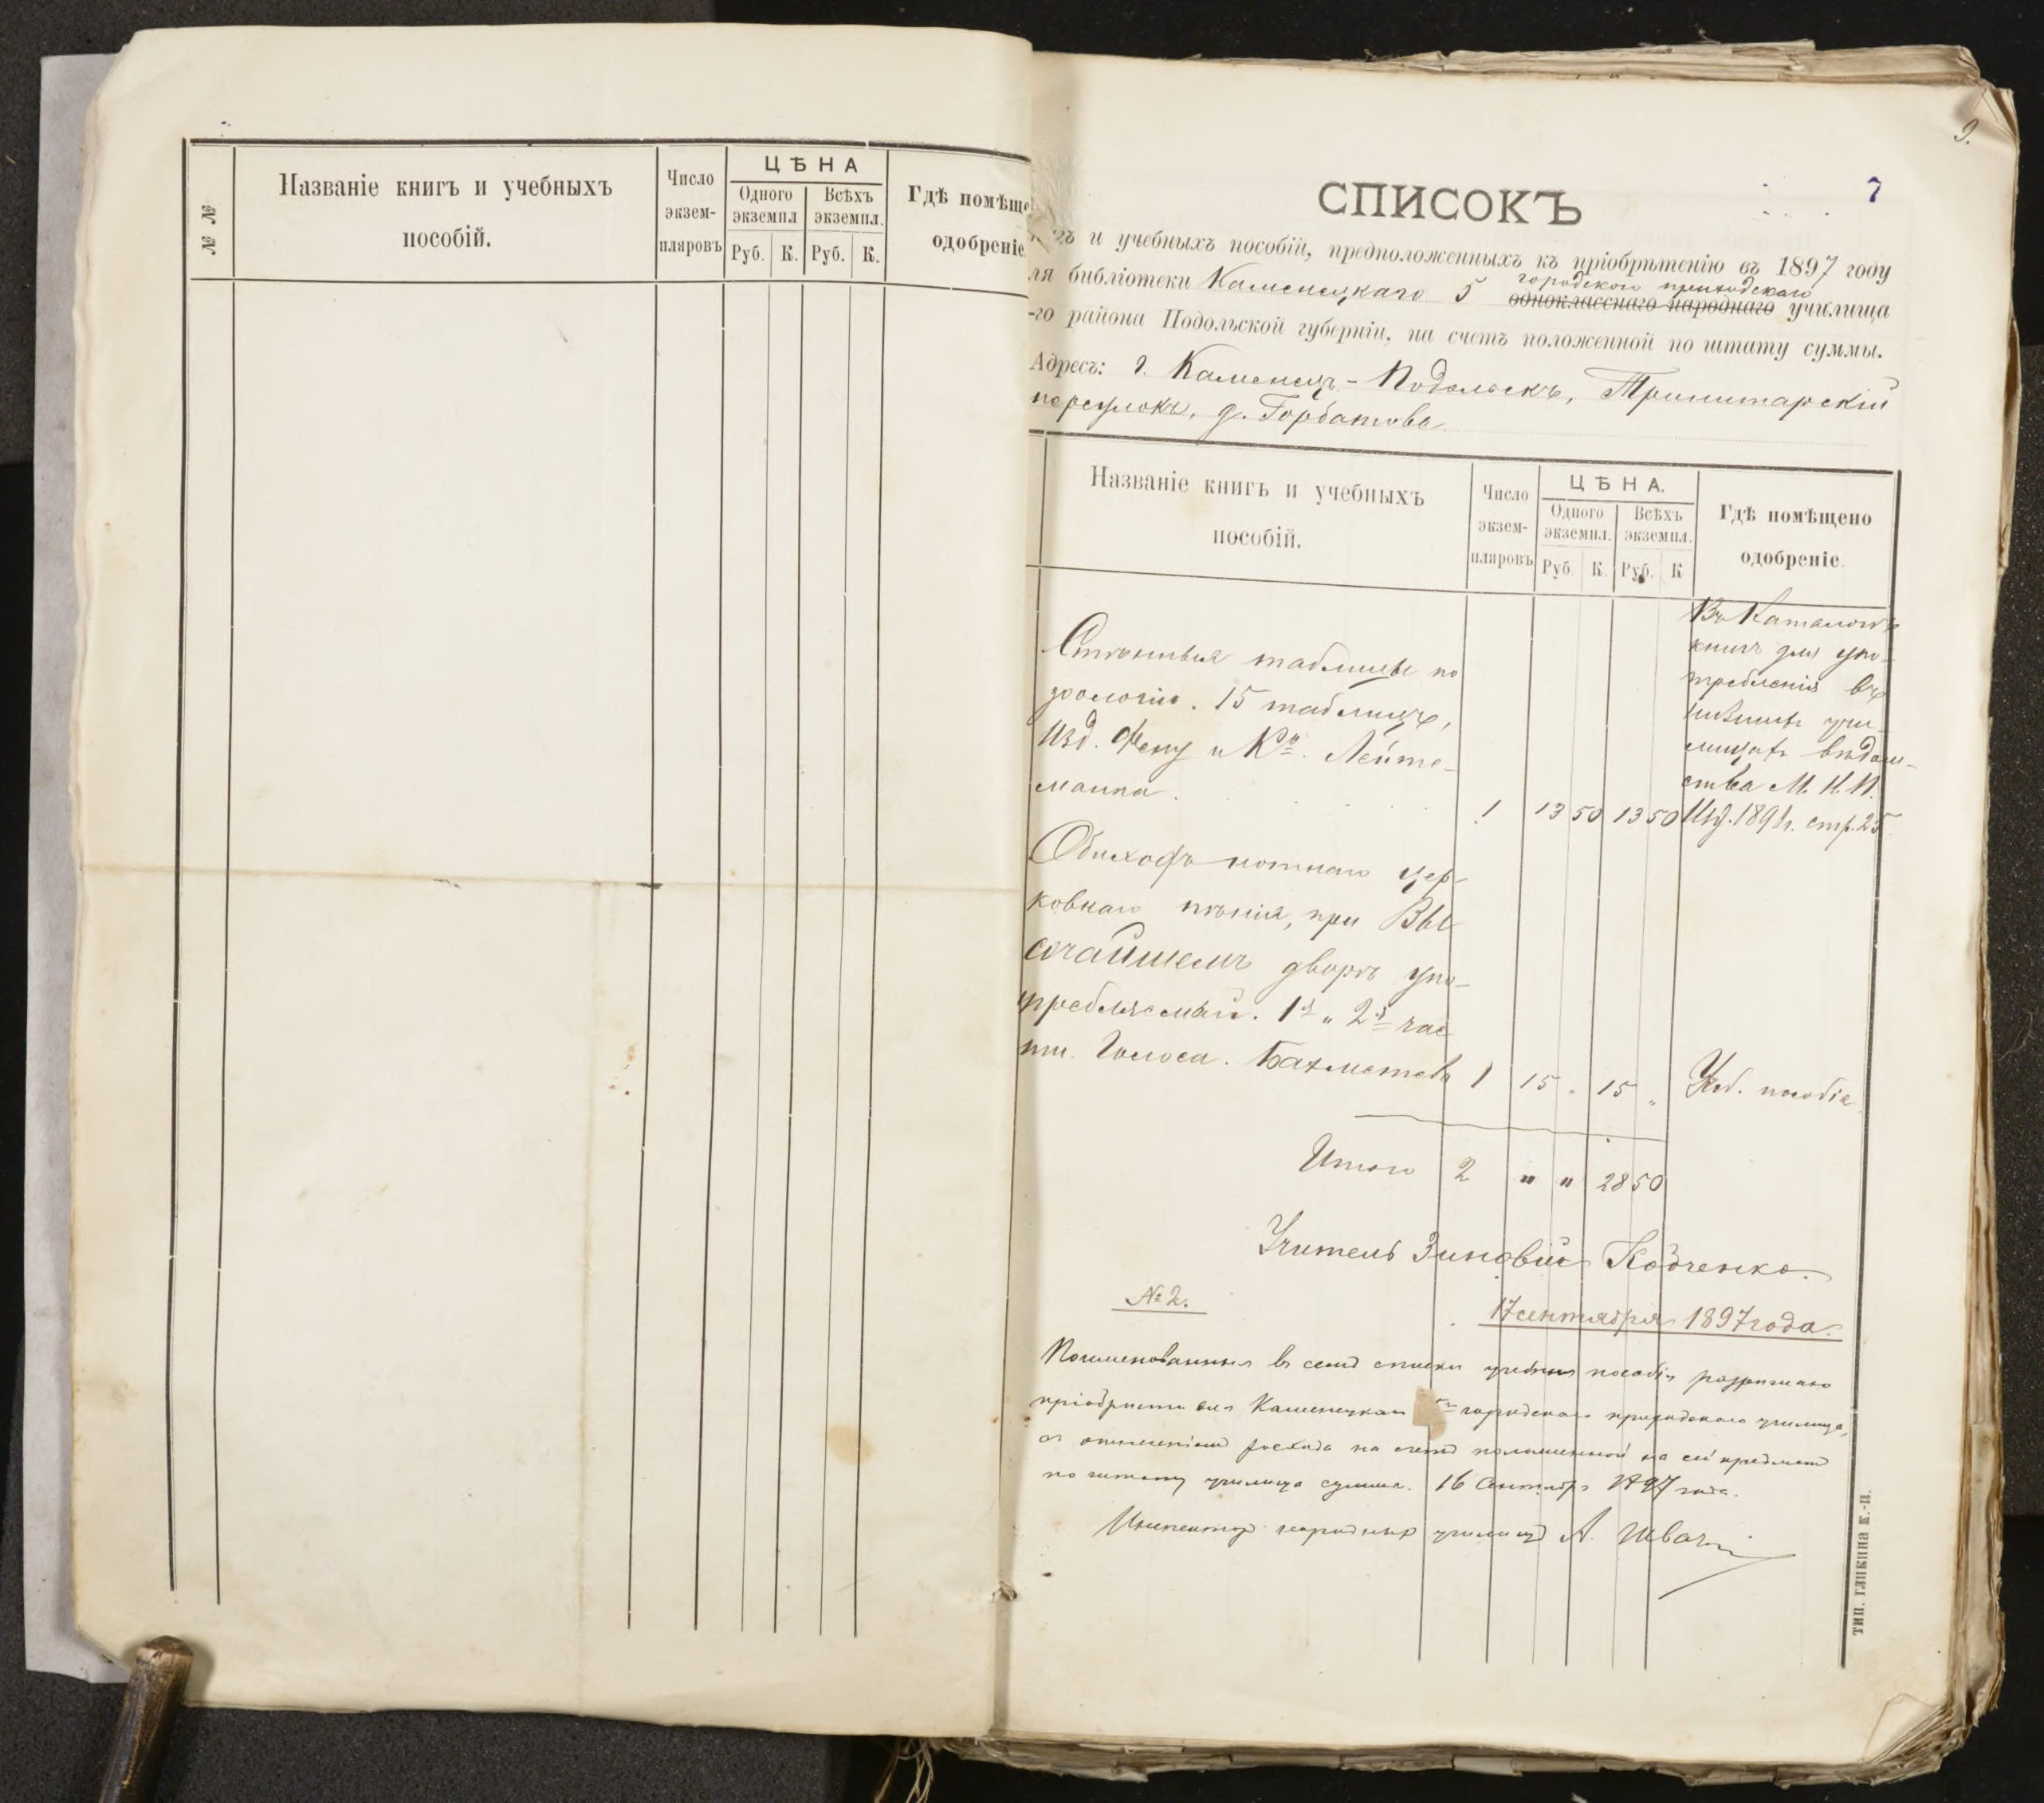 № №
Названіе книгъ и учебныхъ
пособій.
Число
экзем-
пляровъ
ЦѢНА
Одного
экземпл
Всѣхъ
экземпл.
Руб.
К.
Руб.
К.
Гдѣ помѣще
одобреніе.
9.
7
СПИСОКЪ
гъ и учебныхъ пособій, предположенныхъ къ пріобрѣтенію въ 1897 году
городского приходскаго
ля библіотеки Каменецкаго 5 однокласснаго народнаго училища
-го района Подольской губерніи, на счетъ положенной по штату суммы.
Адресъ: г. Каменецъ-Подольскъ, Тринитарскій
переулокъ, д. Горбатова.
Названіе книгъ и учебныхъ
пособій.
Число
экзем-
пляровъ
ЦѢНА.
Одного
экземпл.
Всѣхъ
экземпл.
Руб.
К.
Руб.
К
Гдѣ помѣщено
одобреніе.
Стѣнныя таблицы по
зоологіи. 15 таблицъ,
Изд. Фену и Кº. Лейте-
манна.
1 13 50 13 50
Въ Каталогѣ
книгъ для упо-
требленія въ
низшихъ учи-
лищахъ вѣдом-
ства М. Н. П.
Изд. 1891г. стр. 25
Обиходъ нотнаго цер-
ковнаго пѣнія, при Вы
сочайшемъ дворѣ упо-
требляемый. 1я и 2я час
ти. Голоса. Бахметева
1 15 „ 15 „ Учеб. пособіе
Итого 2 „ „ 28 50
Учитель Зиновій
№ 2.
17 сентября 1897 года.
Поименованныя въ семъ списки учебныя пособія разрѣшаю
пріобрѣсти для Каменецкаго 5го городского приходского училища,
съ отнесеніемъ расхода на счетъ положенной на сей предметъ
по штату училища суммы. 16 Сентября 1897 года.
Инспекторъ народныхъ училищъ А.
ТИП. ГЛИКИНА К.-П.